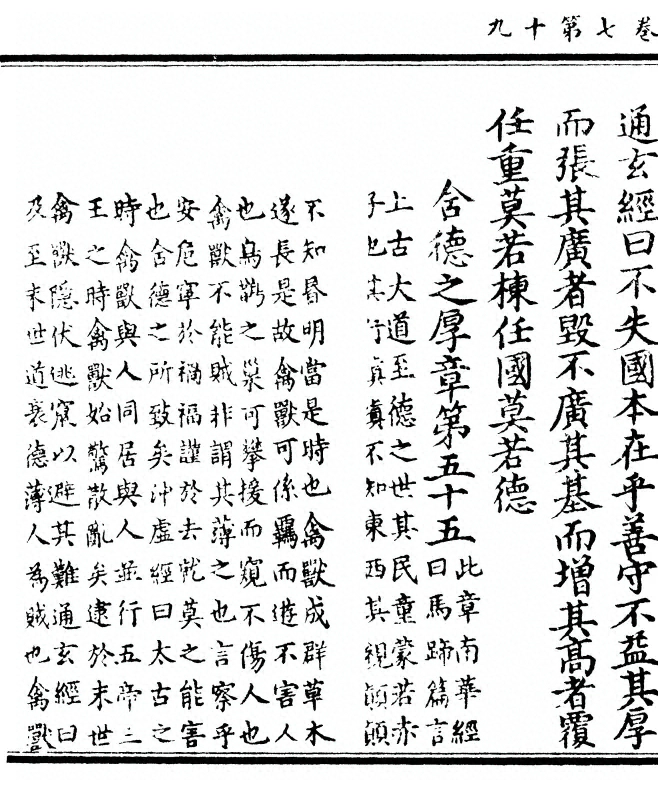 卷七第十九
通玄經曰不失國本在乎善守不益其厚
而張其廣者毀不廣其基而增其高者覆
任重莫若棟任國莫若德
含德之厚章第五十五
此章南華經
曰馬蹄篇言
上古大道至德之世其民童蒙若赤
子也其行真真不知東西其視顛顛
不知昬明當是時也禽獸成群草木
遂長是故禽獸可係羈而遊不害人
也鳥鵲之巢可攀援而窺不傷人也
禽獸不能賊非謂其薄之也言察乎
安危寧於禍福謹於去就莫之能害
也含德之所致矣沖虛經曰太古之
時禽獸與人同居與人並行五帝三
王之時禽獸始驚散亂矣逮於末世
禽獸隱伏逃竄以避其難通玄經曰
及至末世道衰德薄人為賊也禽獸